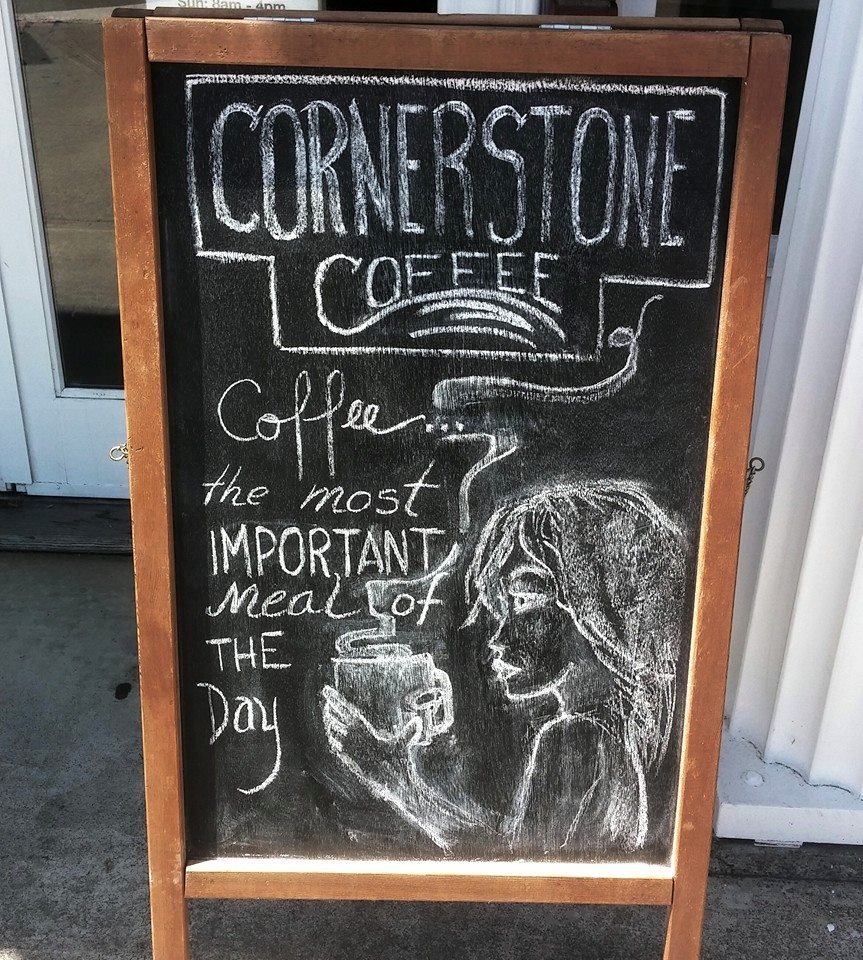 Sun: 8am - 4pm
CORNERSTONE
COFFEE
Coffee...
the most
IMPORTANT
Meal of
THE
Day